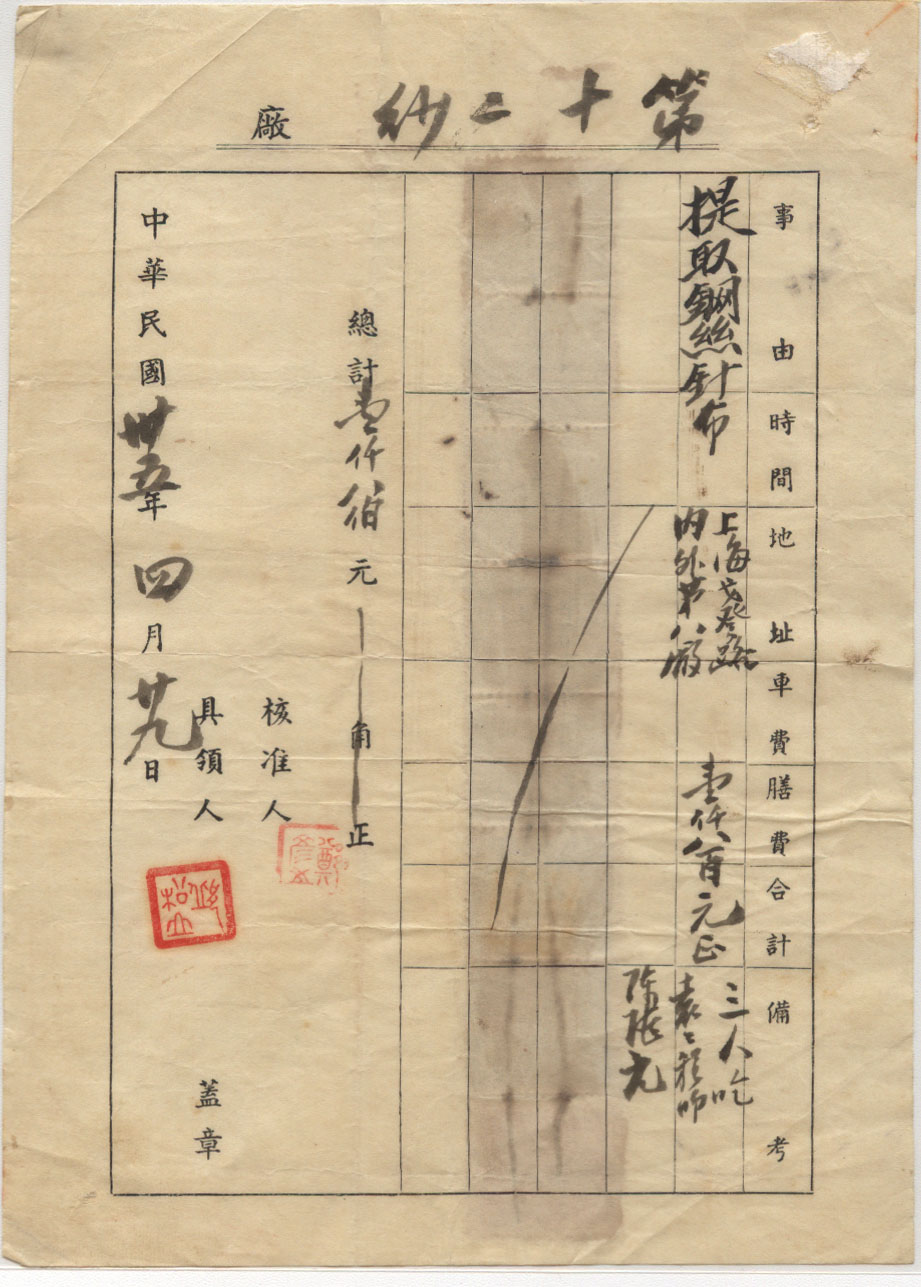 第十二紗廠
事由
時間
地址
車費
膳費
合計
備考
提取鋼絲針布
上海戈登路
內外第八廠
壹仟八百元正
三人吃
陳張元
總計壹仟 佰元 角 正
核准人
具領人
蓋章
中華民國卅五年四月廿九日